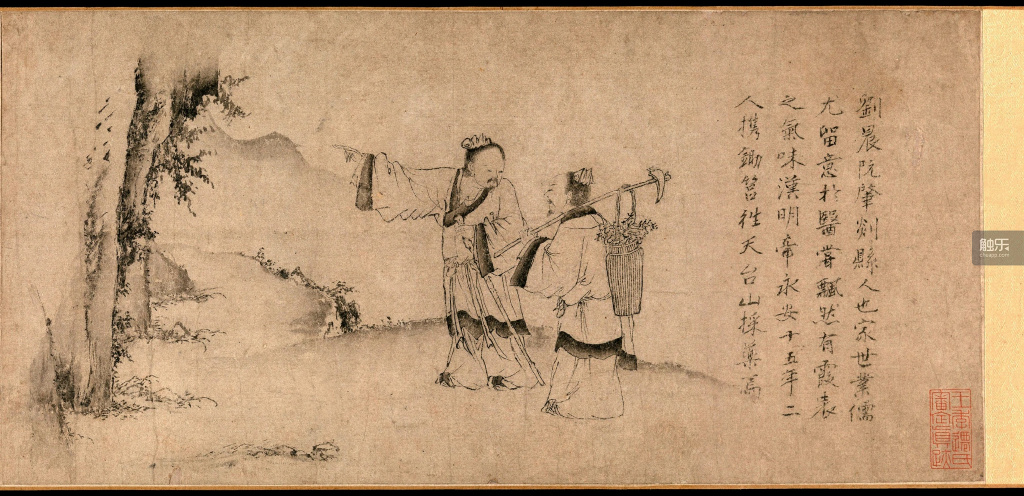 劉晨阮肇剡縣人也家世業儒
尤留意於醫嘗飄然有霞表
之氣味漢明帝永安十五年二
人携鋤筥徃天台山採藥焉
王季遷氏
審定真跡
触乐
chuapp.com